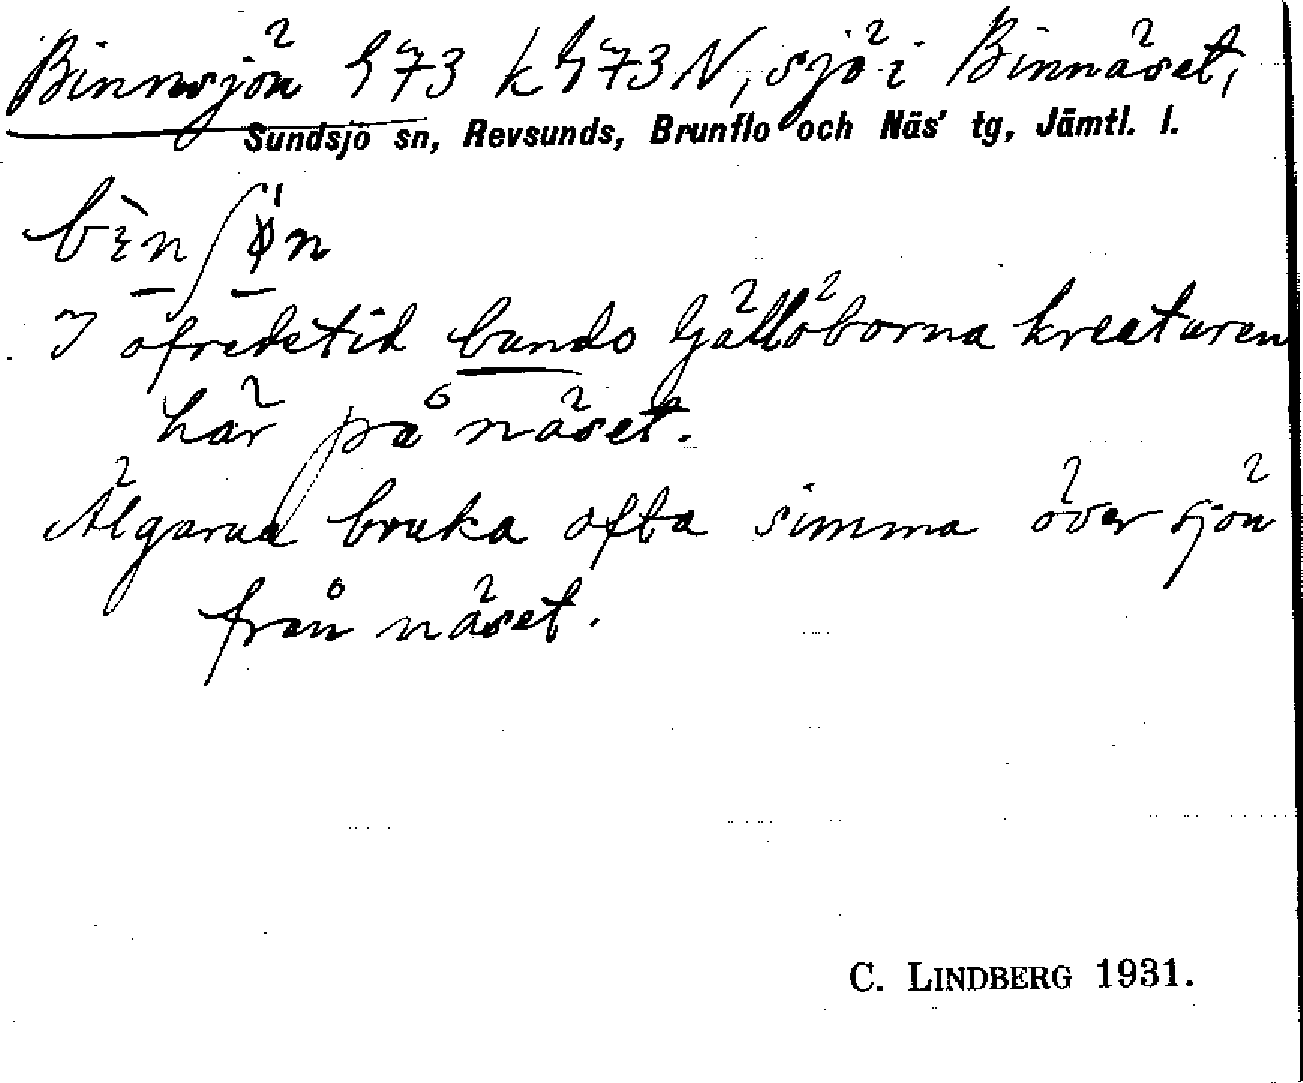 Binnsjön h73 k h73N, sjö i Binnäset,
Sundsjö sn, Revsunds, Brunflo och Näs' tg, Jämtl. l.
I ofredstid bundo Gällöborna kreaturen
här på näset.
Älgarna bruka ofta simma över sjön
från näset.
C. LINDBERG 1931.